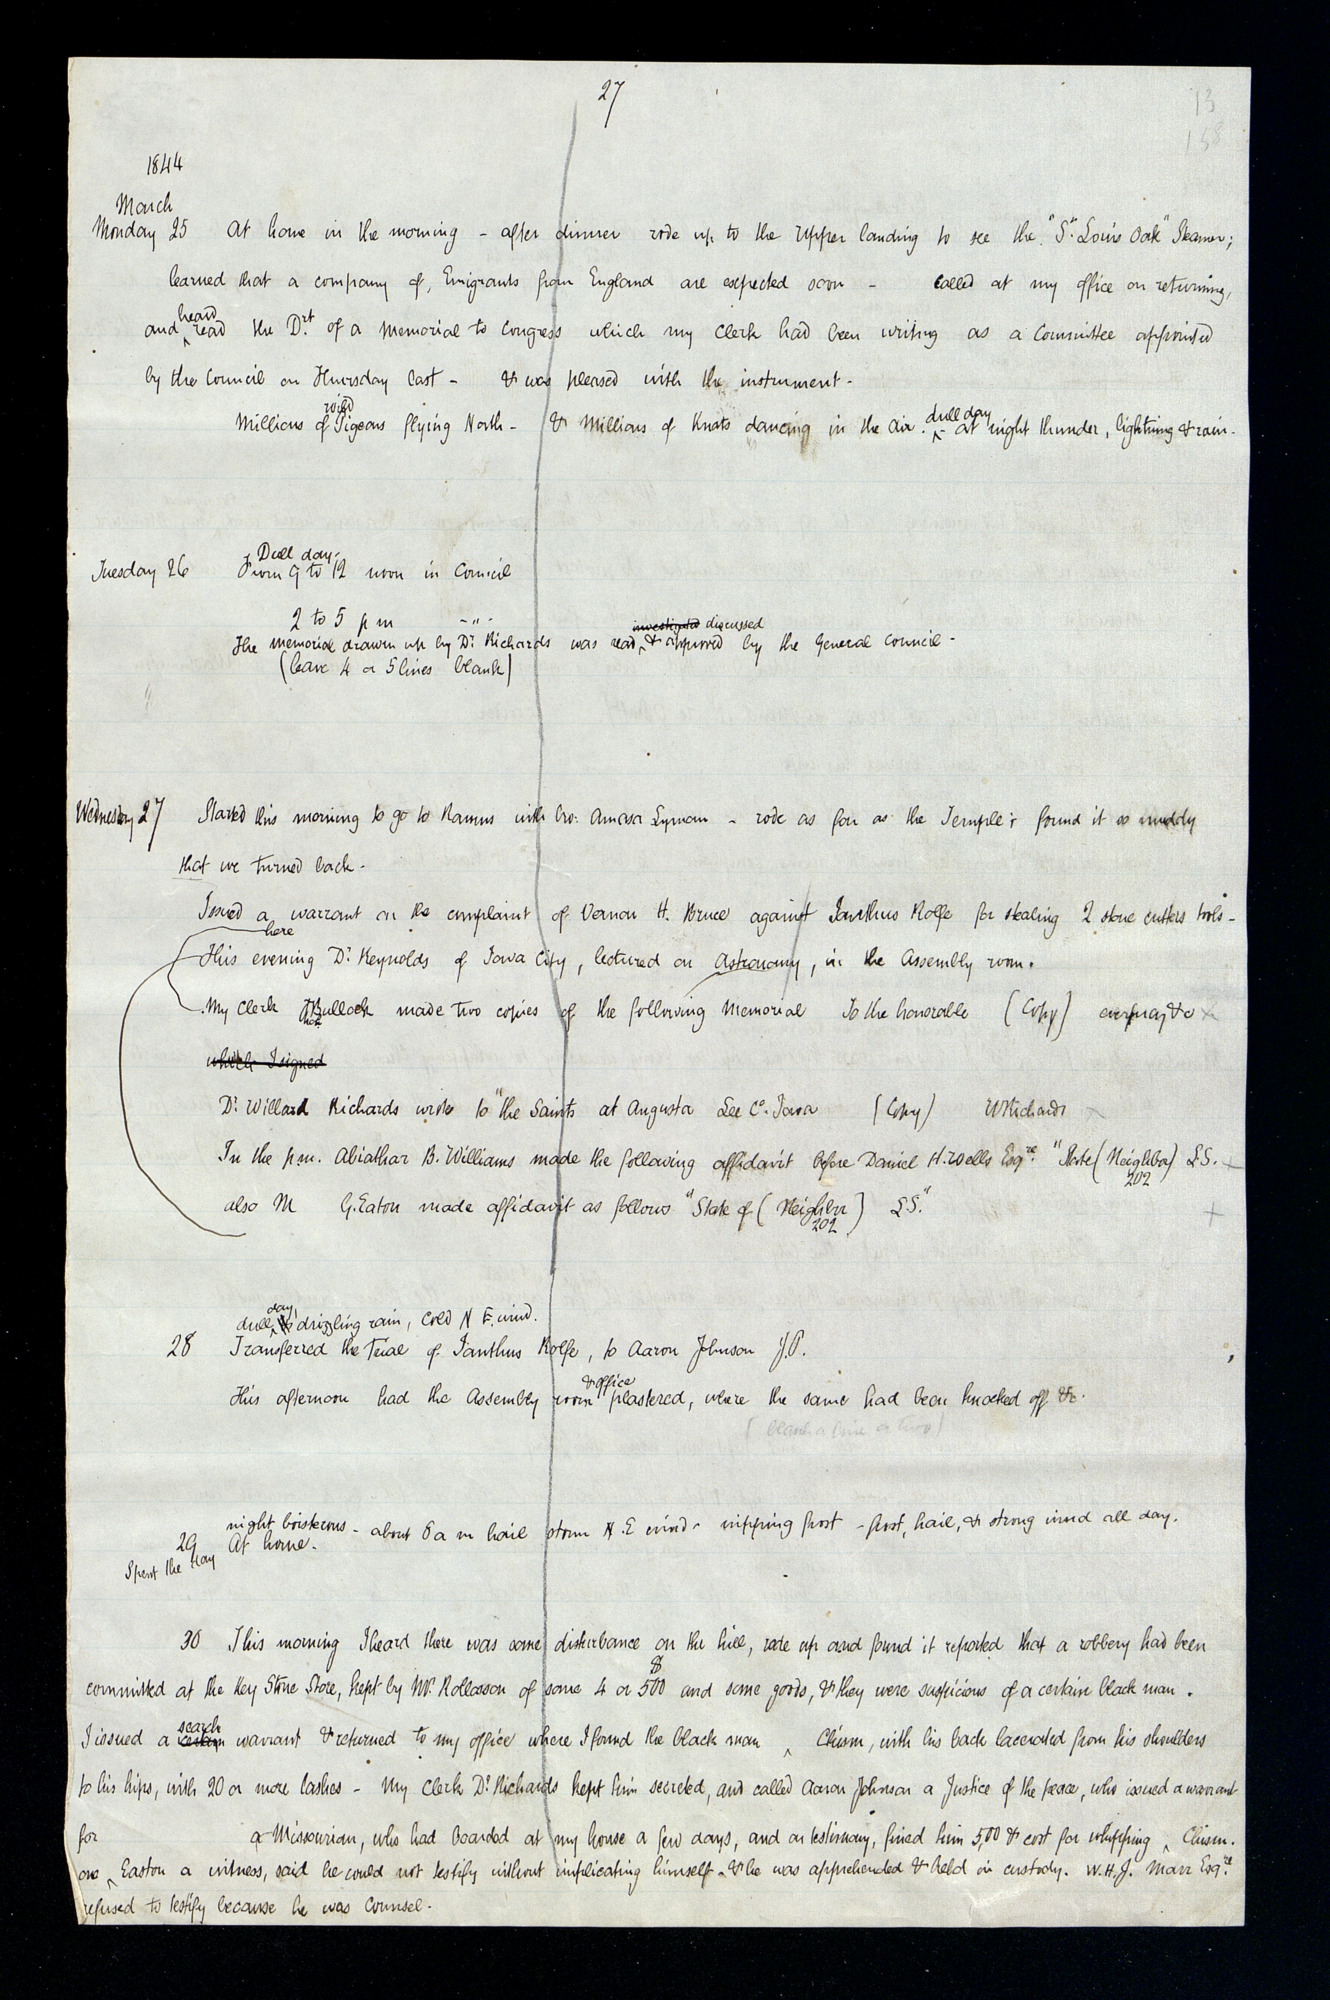 27
13
158
1844
March
Monday 25 At home in the morning - after dinner rode up to the Upper landing to see the "St. Louis Oak" Steamer;
learned that a company of, Emigrants from England are expected soon - called at my office on returning,
and heard read the Drt. of a Memorial to Congress which my clerk had been writing as a Committee appointed
by the Council on Thursday last - & was pleased with the instrument -
Millions of wild Pigeons flying North - & Millions of Knats dancing in the air. dull day - at night thunder, lightning & rain -
Dull day -
Tuesday 26 From 9 to 12 noon in Council
2 to 5 p m - " -
The memorial drawn up by Dr. Richards was read, investigated discussed & approved by the General Council -
(leave 4 or 5 lines blank)
Wednesday 27 Started this morning to go to Ramus with bro: Amasa Lyman - rode as far as the Temple & found it so muddy
that we turned back -
Issued a warrant on the complaint of Vernon H. Bruce against Ianthus Rolfe for stealing 2 stone cutters tools -
here
This evening Dr. Reynolds of Iowa City, lectured on Astronomy, in the Assembly room.
My Clerk Thos Bullock made two copies of the following Memorial To the honorable (Copy) ever pray &c
which I signed
Dr. Willard Richards wrote to "the Saints at Augusta Lee Co. Iowa (Copy) W Richards
In the p m. Abiathar B. Williams made the following affidavit before Daniel H. Wells Esqre. "State (Neighbor) L.S.
202
also M G. Eaton made affidavit as follows "State of (Neighbor) L.S."
202
dull day, drizzling rain, cold N E. wind.
28 Transferred the Trial of Ianthus Rolfe, to Aaron Johnson J.P.
This afternoon had the Assembly room & office plastered, where the same had been knocked off &c.
(blank a line or two)
night boisterous - about 6 a m hail storm N. E wind - nipping frost - frost, hail, & strong wind all day.
29 At home.
Spent the day
30 This morning I heard there was some disturbance on the hill, rode up and found it reported that a robbery had been
committed at the Key Stone Store, kept by Mr. Rollosson of some 4 or $500 and some goods, & they were suspicious of a certain black man.
I issued a certain search warrant & returned to my office where I found the black man Chism, with his back lacerated from his shoulders
to his hips, with 20 or more lashes - My Clerk Dr. Richards kept him secreted, and called Aaron Johnson a Justice of the peace, who issued a warrant
for a Missourian, who had boarded at my house a few days, and on testimony, fined him 5,00 & cost for whipping Chism.
one Easton a witness, said he could not testify without implicating himself - & he was apprehended & held in custody. W. H. J. Marr Esqre.
refused to testify because he was Counsel.